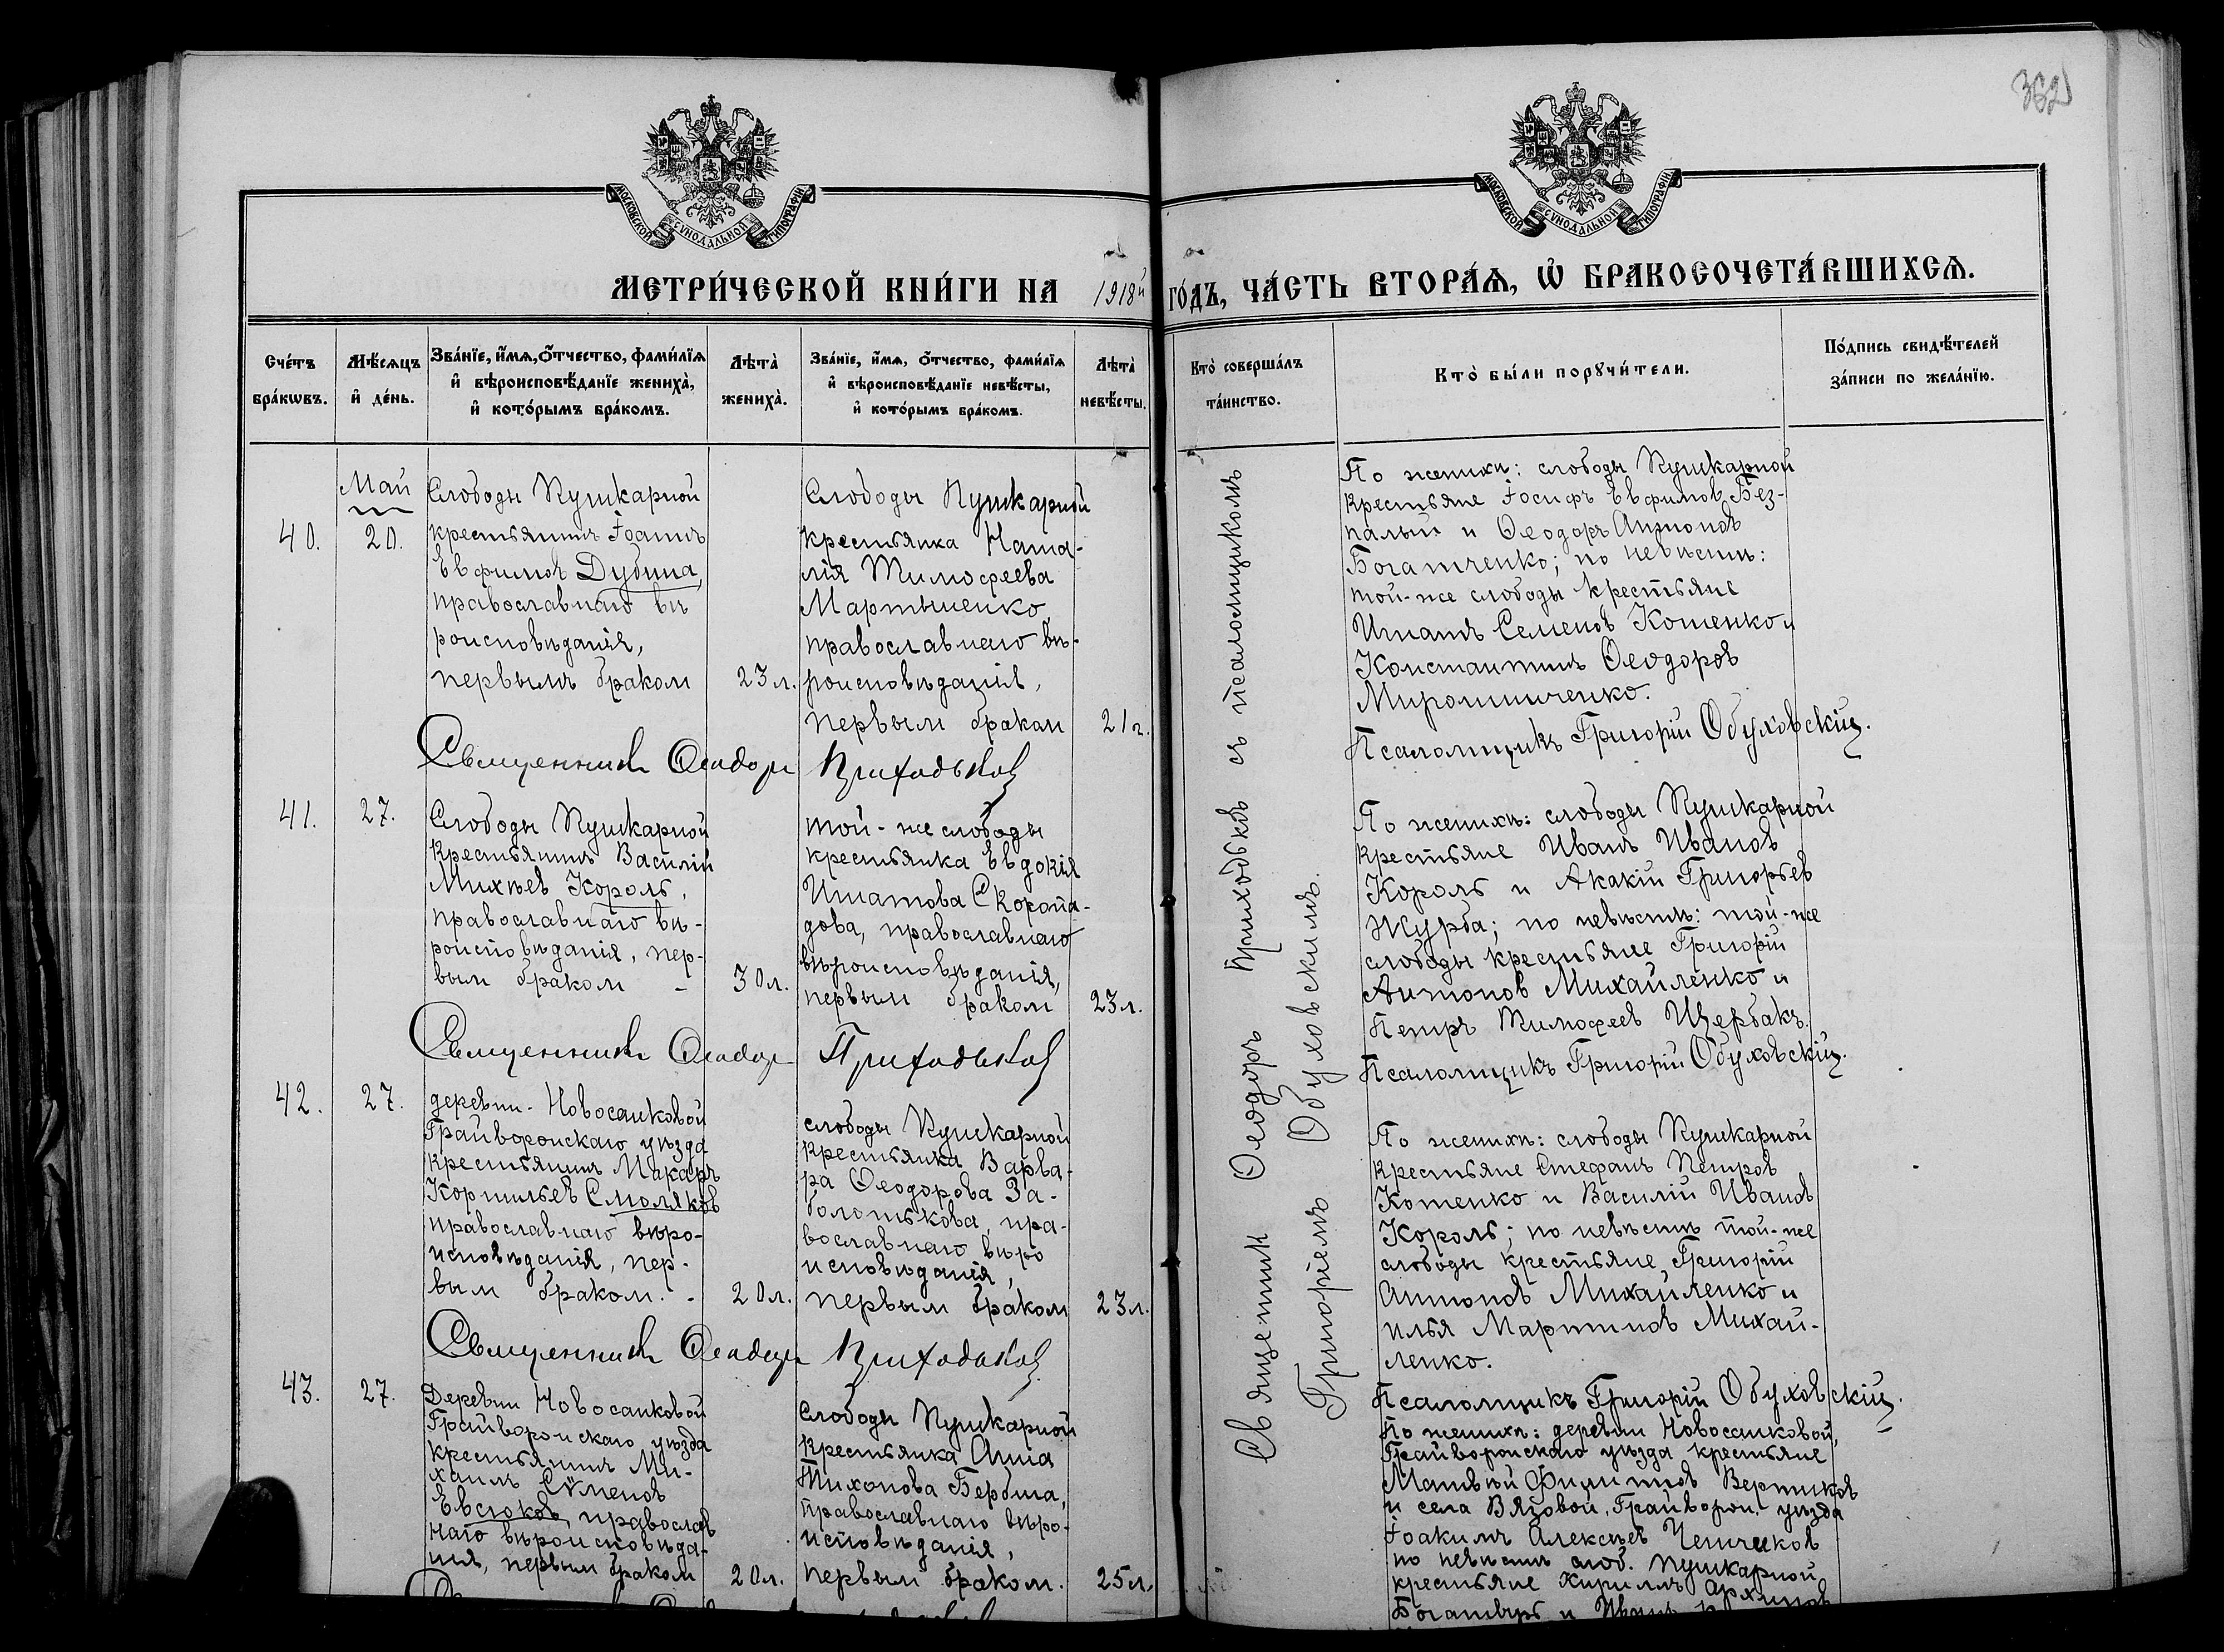 362
МОСКОВСКОЙ СѴНОДАЛЬНОЙ ТИПОГРАФІИ
МОСКОВСКОЙ СѴНОДАЛЬНОЙ ТИПОГРАФІИ
МЕТРИ́ЧЕСКОЙ КНИ́ГИ НА 1918й ГО́ДЪ, ЧА́СТЬ ВТОРА́Ѧ, Ѽ БРАКОСОЧЕТА́ВШИХСѦ.
Сче́тъ
бра́кѡвъ.
Мѣ́сѧцъ
и҆ де́нь.
Зва́нїе, и҆́мѧ, ѻ҆́тчество, фами́лїѧ
и҆ вѣроисповѣ́данїе жениха̀,
и҆ кото́рымъ бра́комъ.
Лѣта̀
жениха̀.
Зва́нїе, и҆́мѧ, ѻ҆́тчество, фами́лїѧ
и҆ вѣроисповѣ́данїе невѣ́сты,
и҆ кото́рымъ бра́комъ.
Лѣта̀
невѣ́сты.
Кто̀ соверша́лъ
та́инство.
Кто̀ бы́ли порꙋчи́тели.
По́дпись свидѣ́телей
за́писи по жела́нїю.
Май
40.
20.
Слободы Пушкарной
крестьянинъ Іоаннъ
Евфимов Дубина,
православнаго вѣ
роисповѣданія,
первымъ браком
23 л.
Слободы Пушкарной
крестьянка Ната-
лія Тимофеева
Мартыненко
православнаго вѣ-
роисповѣданія,
первым браком
21 г.
Священникъ Ѳеодоръ Приходьков
Священник Ѳеодоръ Приходьковъ съ псаломщикомъ
Григоріемъ Обуховскимъ.
По женихѣ: слободы Пушкарной
крестьяне Іосифъ Евфимов Без-
палый и Ѳеодоръ Антонов
Богатченко; по невѣстѣ:
той-же слободы крестьяне
Игнатъ Семенов Котенко и
Константинъ Ѳеодоров
Мирошниченко.
Псаломщикъ Григорій Обуховскій.
41.
27.
Слободы Пушкарной
крестьянинъ Василій
Михѣев Король,
православнаго вѣ-
роисповѣданія, пер-
вым браком -
30 л.
той-же слободы
крестьянка Евдокія
Игнатова Скоропа-
дова, православнаго
вѣроисповѣданія,
первым браком
23 л.
Священникъ Ѳеодоръ Приходьков
По женихѣ: слободы Пушкарной
крестьяне Иванъ Иванов
Король и Акакій Григорьев
Журба; по невѣстѣ: той-же
слободы крестьяне Григорій
Антонов Михайленко и
Петръ Тимофеев Щербакъ.
Псаломщикъ Григорій Обуховскій.
42.
27.
деревни Новосанковой
Грайворонскаго уѣзда
крестьянинъ Макаръ
Корнильев Смоляков
православнаго вѣро-
исповѣданія, пер-
вым браком. -
20 л.
слободы Пушкарной
крестьянка Варва-
ра Ѳеодорова За-
болотькова, пра-
вославнаго вѣро
исповѣданія,
первым браком
23 л.
Священникъ Ѳеодоръ Приходьков
По женихѣ: слободы Пушкарной
крестьяне Стефанъ Петров
Котенко и Василій Иванов
Король; по невѣстѣ той-же
слободы крестьяне Григорій
Антонов Михайленко и
Илья Мартинов Михай-
ленко.
Псаломщикъ Григорій Обуховскій.
43.
27.
Деревни Новосанковой
Грайворонскаго уѣзда
крестьянинъ Ми-
хаилъ Семенов
Евсюков, православ
наго вѣроисповѣда-
нія, первым браком
20 л.
Слободы Пушкарной
крестьянка Анна
Тихонова Бербина,
православнаго вѣро-
исповѣданія,
первым браком.
25 л.
По женихѣ: деревни Новосанковой,
Грайворонскаго уѣзда крестьяне
Матвѣй Филиппов
и села Вязовой, Грайворон. уѣзда
Іоакимъ Алексѣев
по невѣстѣ слоб. Пушкарной
крестьяне Кириллъ Архипов
и